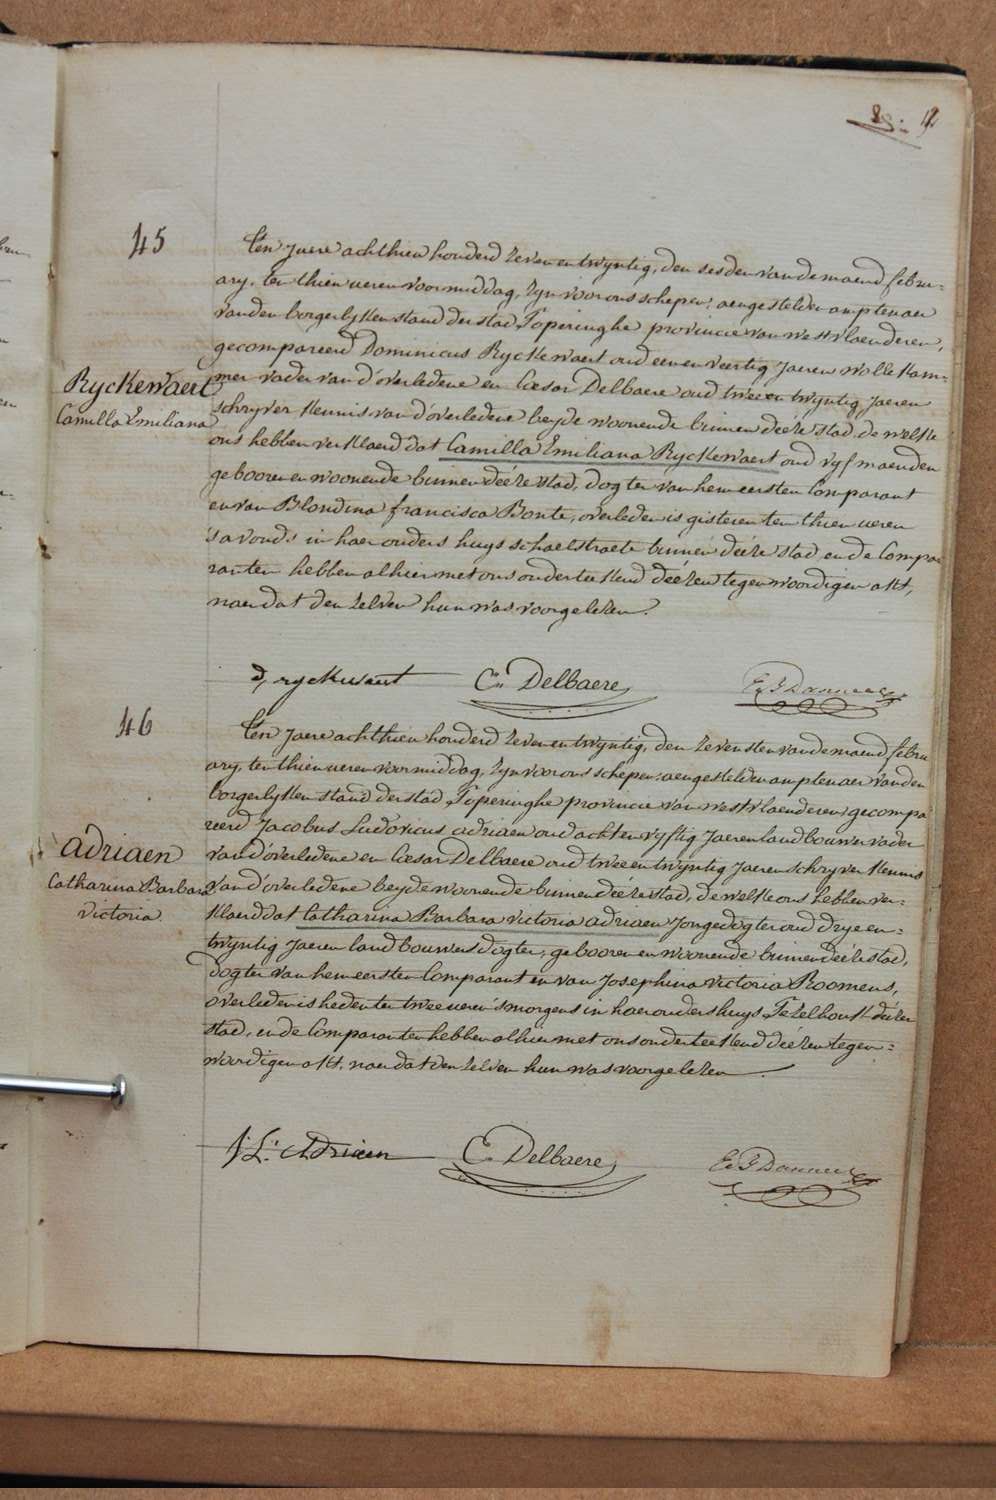 12
45
Ten Jaere achthien honderd zeven en twyntig, den sesden van de maend febru=
ary, ten thien ueren voormiddag, zyn voor ons schepen, aengestelden amptenaer
van den borgerlyken stand der stad Poperinghe provincie van westvlaenderen,
gecompareerd Dominicus Ryckewaert oud een en veertig Jaeren wolle kam=
mer vader van d'overledene en Cæsar Delbaere oud twee en twyntig Jaeren
Ryckewaert
Camilla Emiliana
schryver kennis van d'overledene beyde woonende binnen deéze stad, de welke
ons hebben verklaerd dat Camilla Emiliana Ryckewaert oud vyf maenden
gebooren en woonende binnen deéze stad, dogter van hem eersten Comparant
en van Blondina francisca Bonte, overleden is gisteren ten thien ueren
s'avonds in haer ouders huys schaelstraete binnen deéze stad en de Compa=
ranten hebben alhier met ons onderteekend deézen tegenwoordigen akt,
naer dat den zelven hun was voorgelezen.
d, ryckewaert C: Delbaere
46
Ten Jaere achthien honderd zeven en twyntig, den zevensten van de maend febru
ary, ten thien ueren voormiddag, zyn voor ons schepen aengestelden amptenaer van den
borgerlyken stand der stad Poperinghe provincie van westvlaenderen, gecompa
reerd Jacobus Ludovicus adriaen oud acht en vyftig Jaeren landbouwer vader
van d'overledene en Cæsar Delbaere oud twee en twyntig Jaeren schryver kennis
adriaen
Catharina Barbara
victoria
van d'overledene beyde woonende binnen deéze stad, de welke ons hebben ver=
klaerd dat Catharina Barbara victoria adriaen Jongedogter oud drye en=
twyntig Jaeren landbouwers dogter, gebooren en woonende binnen deéze stad,
dogter van hem eersten Comparant en van Josephina victoria Roomens,
overleden is heden ten twee ueren s'morgens in haer ouders huys deézer
stad, en de Comparanten hebben alhier met ons onderteekend deézen tegen=
woordigen akt, naer dat den zelven hun was voorgelezen
J: L: Adriaen C: Delbaere